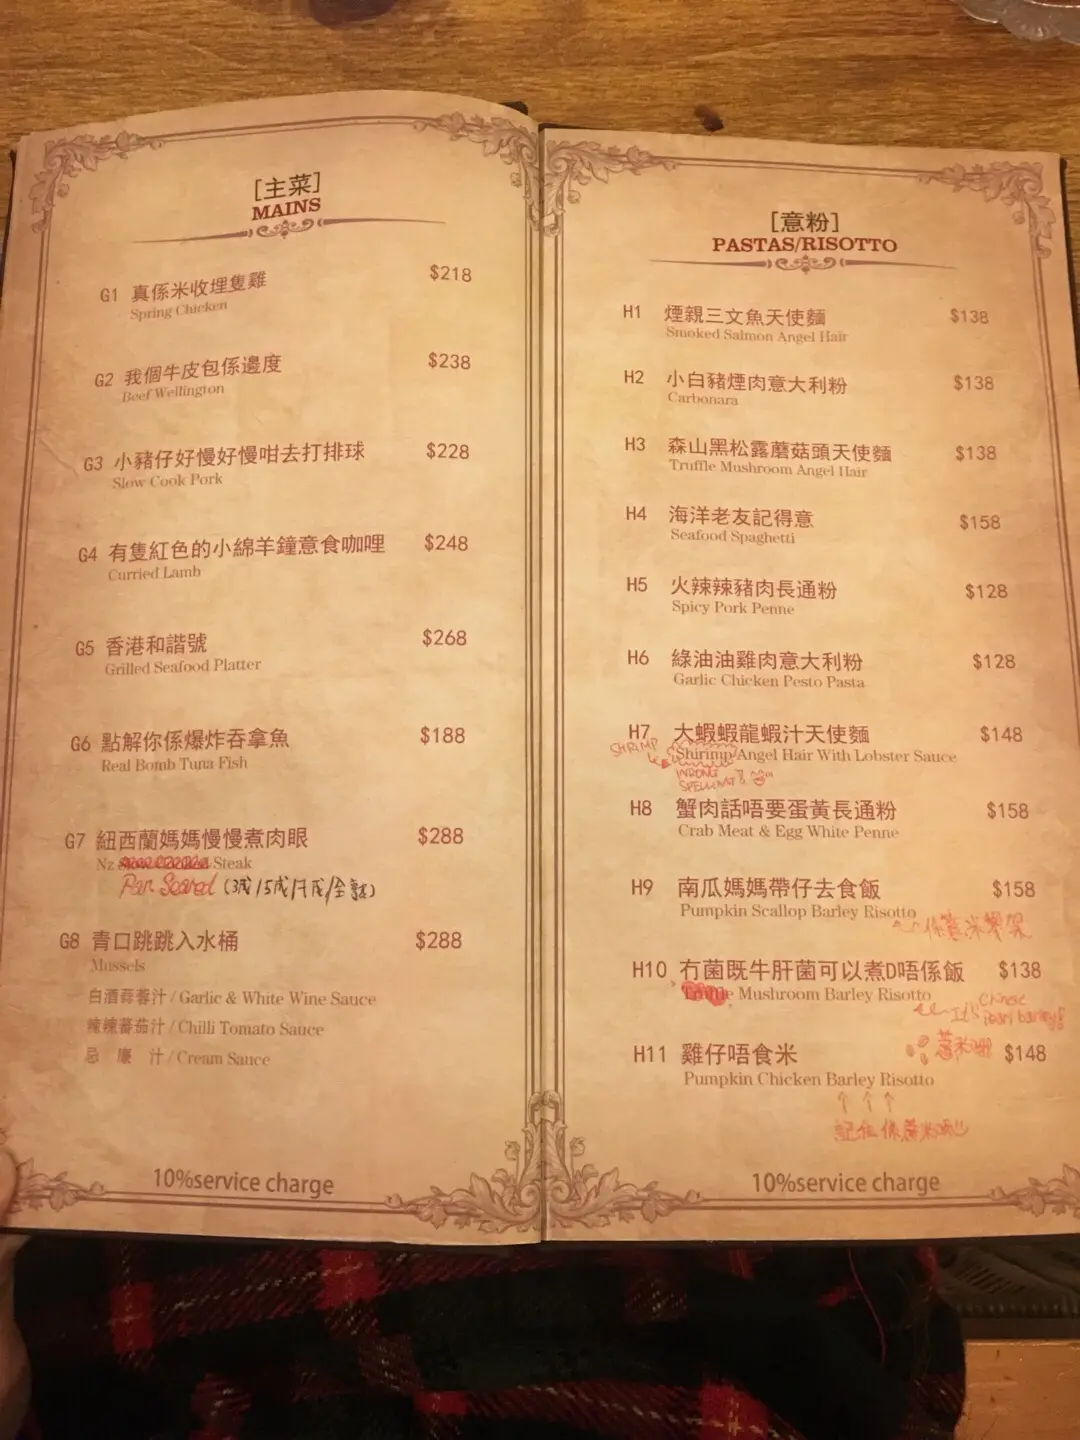 [主菜]
MAINS
G1 真係米收埋隻雞 $218
Spring Chicken
G2 我個牛皮包係邊度 $238
Beef Wellington
G3 小豬仔好慢好慢咁去打排球 $228
Slow Cook Pork
G4 有隻紅色的小綿羊鐘意食咖哩 $248
Curried Lamb
G5 香港和諧號 $268
Grilled Seafood Platter
G6 點解你係爆炸吞拿魚 $188
Real Bomb Tuna Fish
G7 紐西蘭媽媽慢慢煮肉眼 $288
Nz Slow Cooked Steak
Pan Seared (3成/5成/7成/全熟)
G8 青口跳跳入水桶 $288
Mussels
白酒蒜蓉汁 / Garlic & White Wine Sauce
辣辣蕃茄汁 / Chilli Tomato Sauce
忌廉汁 / Cream Sauce
10%service charge
[意粉]
PASTAS/RISOTTO
H1 煙親三文魚天使麵 $138
Smoked Salmon Angel Hair
H2 小白豬煙肉意大利粉 $138
Carbonara
H3 森山黑松露蘑菇頭天使麵 $138
Truffle Mushroom Angel Hair
H4 海洋老友記得意 $158
Seafood Spaghetti
H5 火辣辣豬肉長通粉 $128
Spicy Pork Penne
H6 綠油油雞肉意大利粉 $128
Garlic Chicken Pesto Pasta
H7 大蝦蝦龍蝦汁天使麵 $148
SHRIMP
Shirimp/Angel Hair With Lobster Sauce
WRONG
SPELLING
H8 蟹肉話唔要蛋黃長通粉 $158
Crab Meat & Egg White Penne
H9 南瓜媽媽帶仔去食飯 $158
Pumpkin Scallop Barley Risotto
係薏米
H10 冇菌既牛肝菌可以煮D唔係飯 $138
Truffle Mushroom Barley Risotto
It's Chinese
pearl barley!
薏米
H11 雞仔唔食米 $148
Pumpkin Chicken Barley Risotto
記住係薏米
10%service charge